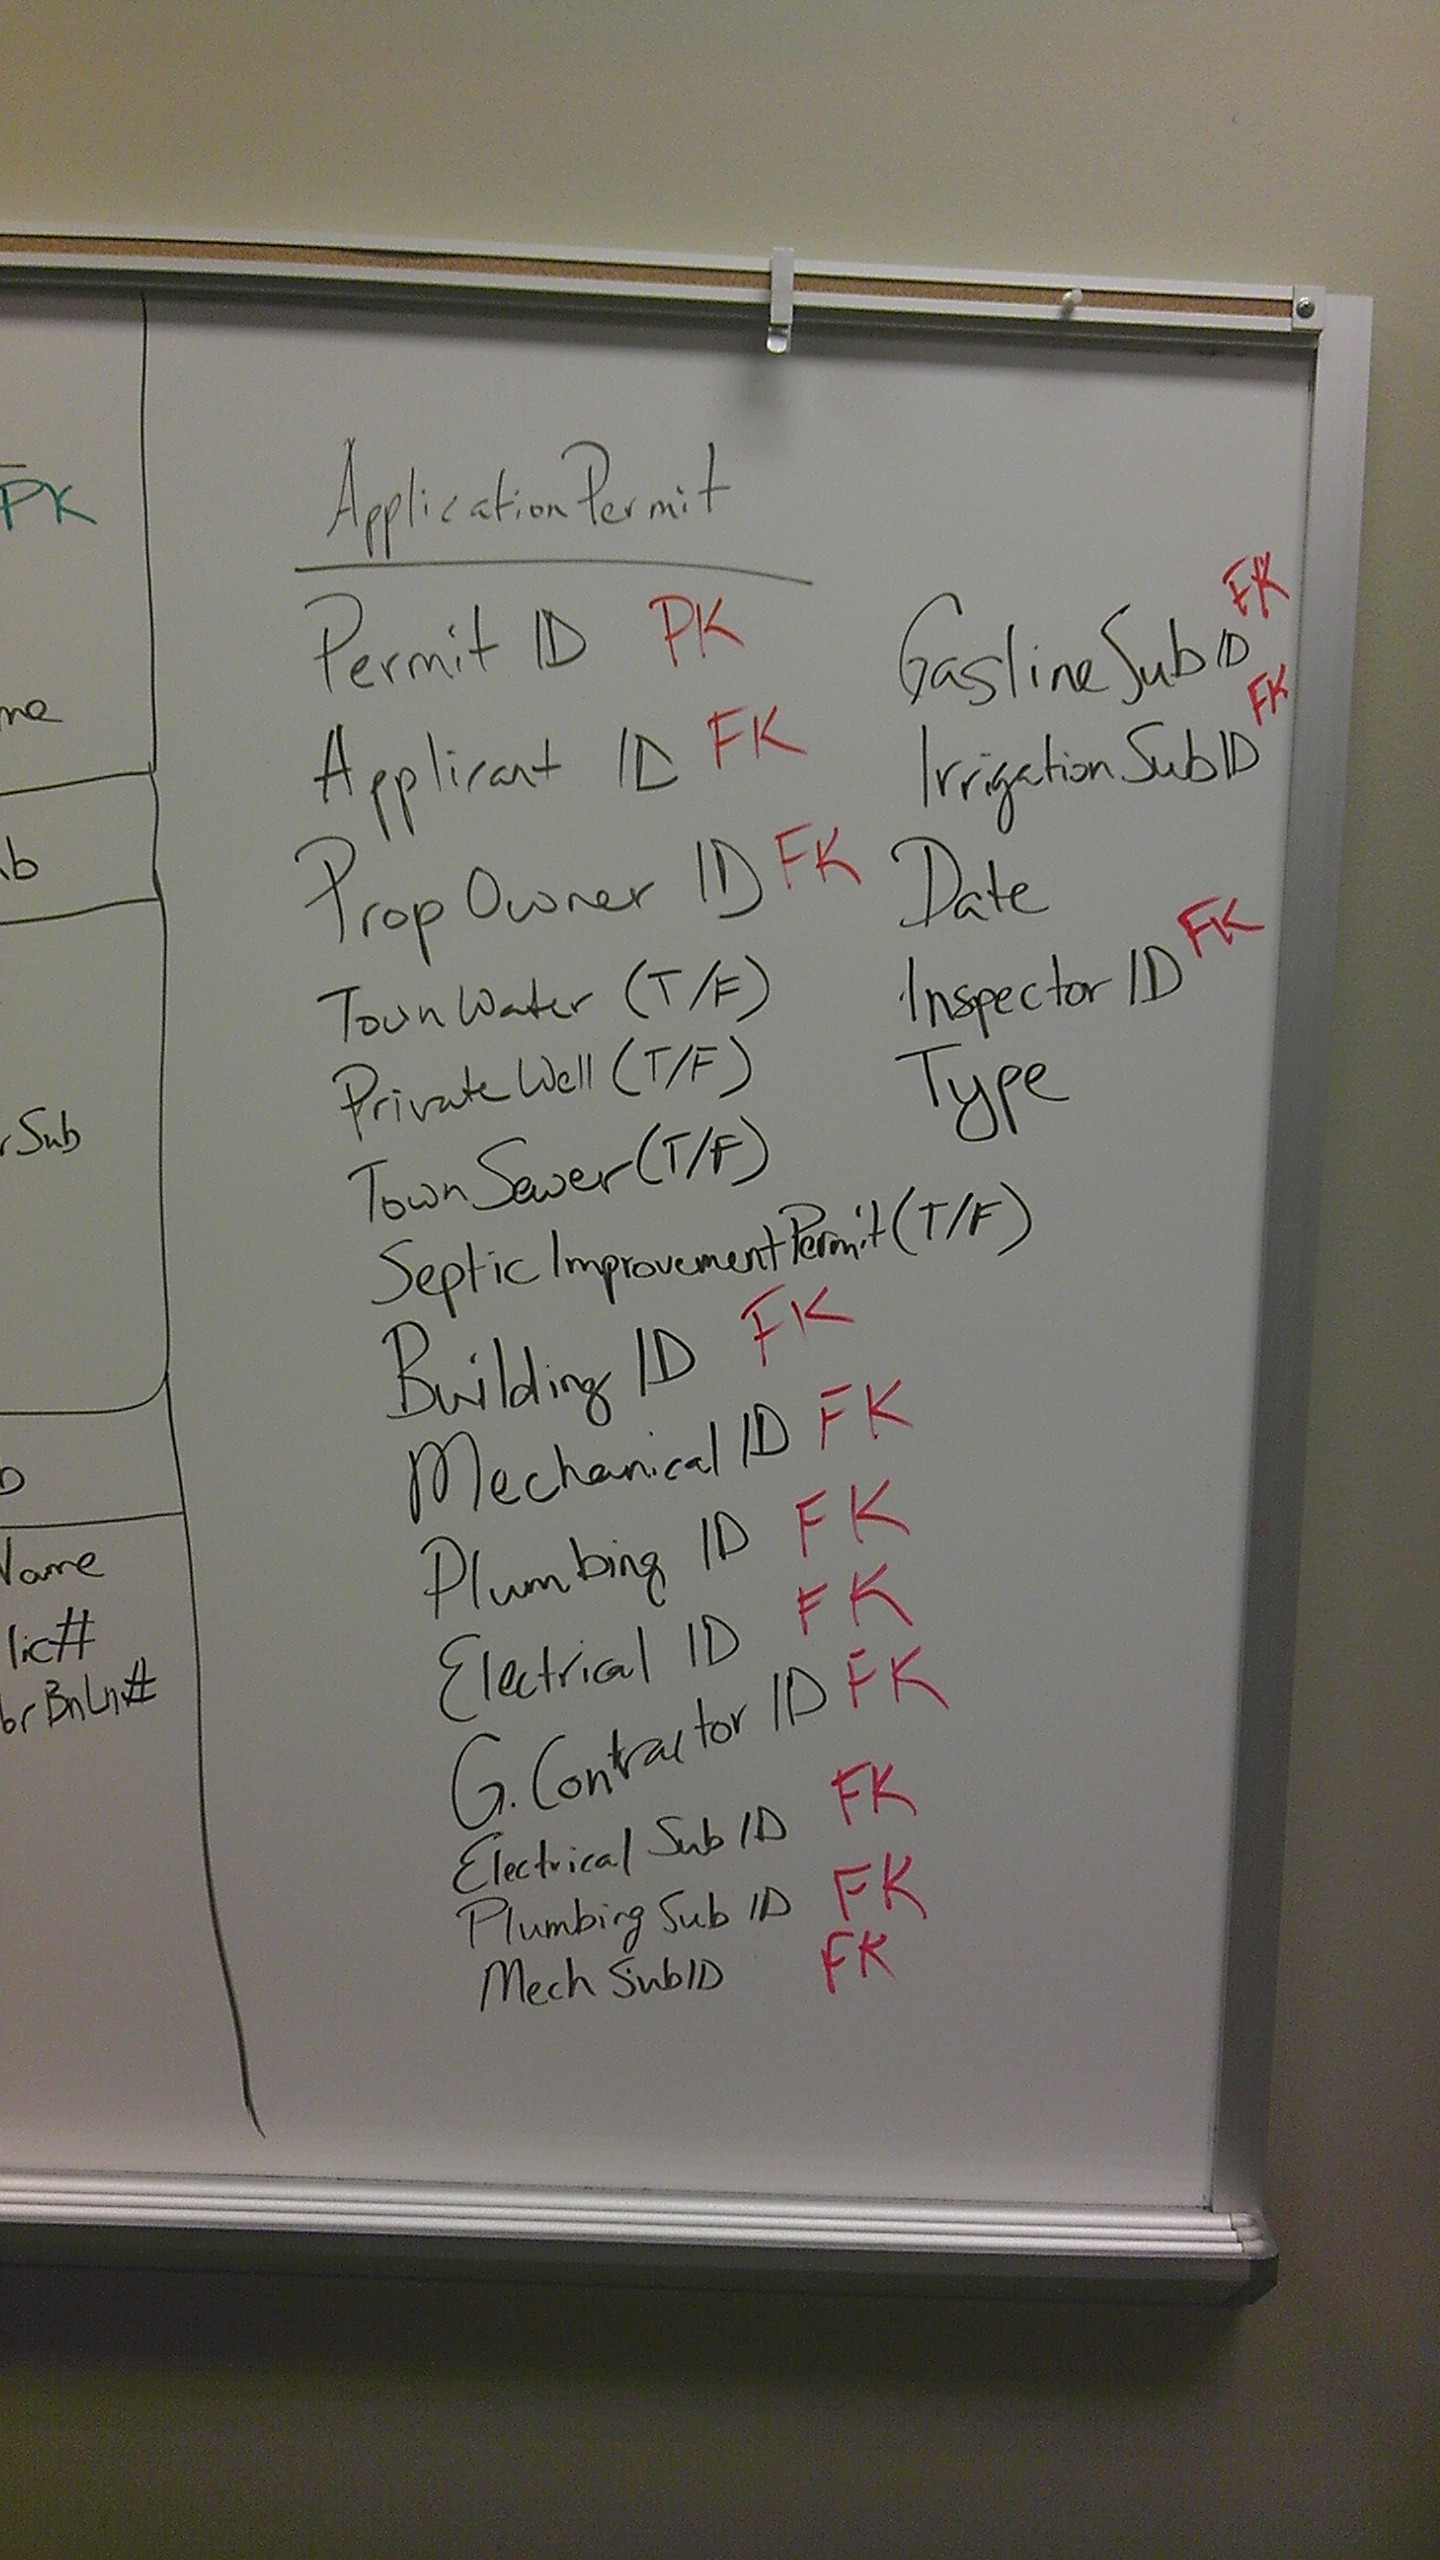 PK
me
b
rSub
D
Name
lic#
brBnLn#
ApplicationPermit
Permit ID PK
Applicant ID FK
PropOwner ID FK
TownWater (T/F)
PrivateWell (T/F)
TownSewer (T/F)
SepticImprovementPermit (T/F)
Building ID FK
Mechanical ID FK
Plumbing ID FK
Electrical ID FK
G.Contractor ID FK
Electrical Sub ID FK
Plumbing Sub ID FK
Mech SubID FK
GaslineSubID FK
IrrigationSubID FK
Date
Inspector ID FK
Type